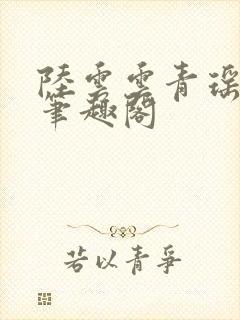 陸雲雲青瑶
筆趣閣
若以青爭